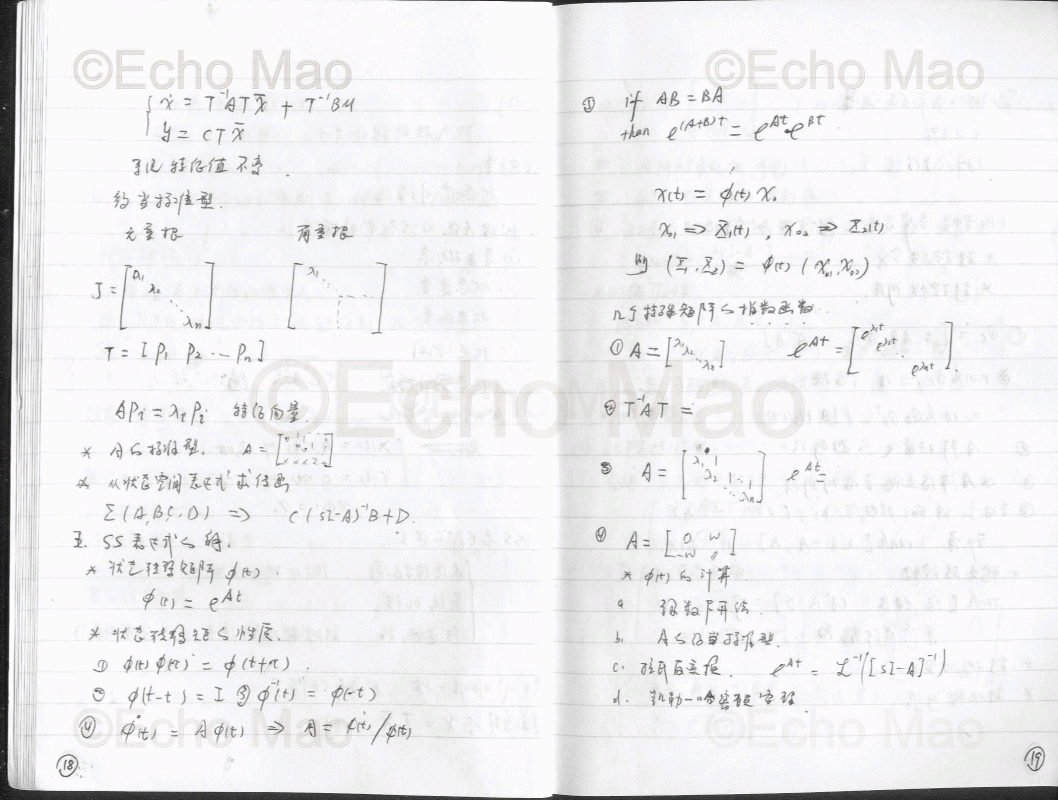 ©Echo Mao ©Echo Mao
ẋ = T⁻¹AT x̄ + T⁻¹Bu
y = CT x̄
特征值不变.
约当标准型.
无重根 有重根
J = [λ₁ λ₂ ⋱ λₙ] [λ₁ ⋱]
T = [P₁ P₂ ⋯ Pₙ]
APᵢ = λᵢPᵢ 特征向量.
* A的标准型. A =
* 从状态空间表达式求传函
Σ(A,B,C,D) ⇒ C(sI-A)⁻¹B+D.
五. SS表达式的解.
* 状态转移矩阵 φ(t).
φ(t) = e^{At}
* 状态转移矩阵的性质.
① φ(t)φ(τ) = φ(t+τ).
③ φ(t-t) = I 即 φ⁻¹(t) = φ(-t)
④ φ̇(t) = Aφ(t) ⇒ A = φ̇(t)/φ(t)
©Echo Mao
18
if AB = BA
than e^{(A+B)t} = e^{At}·e^{Bt}
x(t) = φ(t) x₀
x₀₁ ⇒ x₁(t), x₀₂ ⇒ x₂(t)
则 (x₁, x₂) = φ(t) (x₀₁, x₀₂)
几个特殊矩阵的指数函数.
① A = [λ₁ λ₂ ⋱ λₙ] e^{At} = [e^{λ₁t} e^{λ₂t} ⋱ e^{λₙt}].
② T⁻¹AT =
③ A = [λ₁ 1 λ₂ ⋱ 1 λₙ] e^{At} =
④ A = [0 w -w 0]
* φ(t) 的计算
a 级数算法
b. A的约当标准型.
c. 拉氏反变换. e^{At} = L⁻¹([sI-A]⁻¹)
d. 凯勒-哈密顿定理
©Echo Mao
19
©Echo Mao